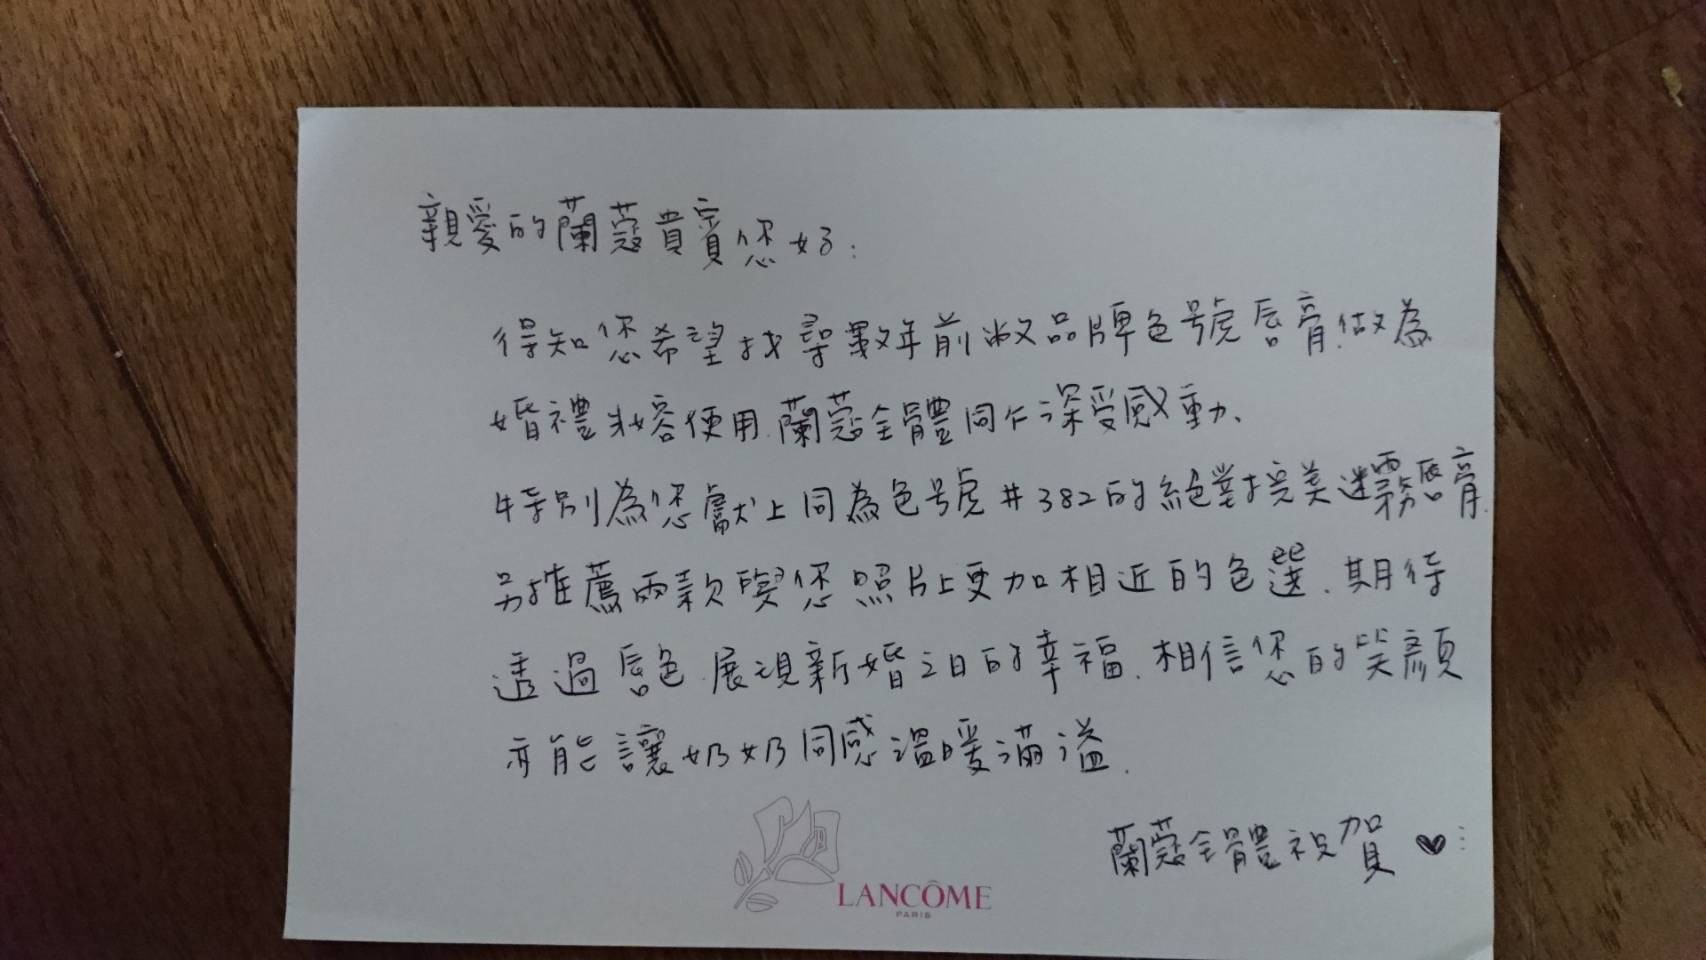 親愛的蘭蔻貴賓您好:
得知您希望找尋數年前敝品牌色號唇膏.做為
婚禮妝容使用.蘭蔻全體同仁深受感動、
特別為您獻上同為色號#382的絕對完美迷霧唇膏.
另推薦兩款與您照片上更加相近的色選.期待
透過唇色.展現新婚之日的幸福.相信您的笑顏
亦能讓奶奶同感溫暖滿溢.
蘭蔻全體祝賀 ♥⋮
LANCÔME
PARIS